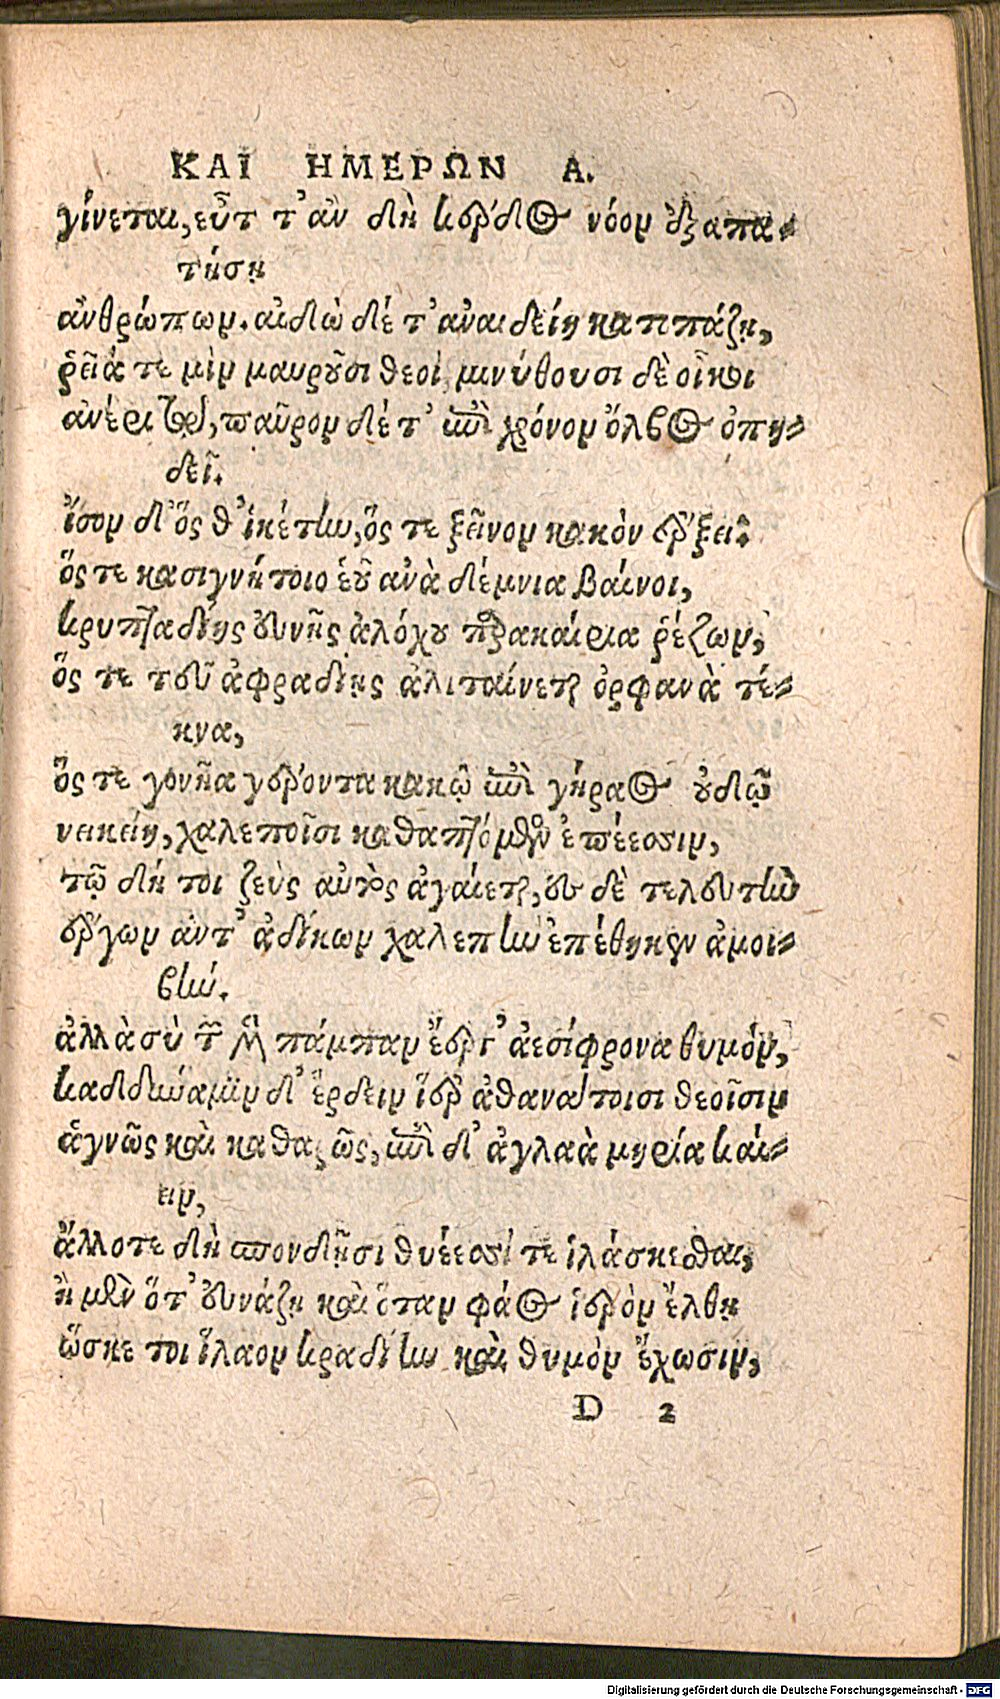 ΚΑΙ ΗΜΕΡΩΝ Α.
γίνεται, εὖτ τ' ἂν δὴ κέρδος νόον ἐξαπα-
τήσῃ
ἀνθρώπων. αἰδὼ δέ τ' ἀναιδείη καππάζῃ,
ῥεῖά τε μὶν μαυροῦσι θεοὶ, μινύθουσι δὲ οἶκοι
ἀνέρι τῷ, παῦρον δέ τ' ἐπὶ χρόνον ὄλβος ὀπη-
δεῖ.
ἶσον δ' ὅς θ' ἱκέτην, ὅς τε ξεῖνον κακὸν ἔρξει·
ὅς τε κασιγνήτοιο ἑοῦ ἀνὰ δέμνια βαίνοι,
κρυπταδίης εὐνῆς ἀλόχου παρακαίρια ῥέζων,
ὅς τε τευ ἀφραδίῃς ἀλιταίνεται ὀρφανὰ τέ-
κνα,
ὅς τε γονῆα γέροντα κακῷ ἐπὶ γήραος οὐδῷ
νεικείη, χαλεποῖσι καθαπτόμενος ἐπέεσσιν,
τῷ δή τοι ζεὺς αὐτὸς ἀγαίεται, ἐς δὲ τελευτὴν
ἔργων ἀντ' ἀδίκων χαλεπὴν ἐπέθηκεν ἀμοι-
βήν.
ἀλλὰ σὺ τῶν μὲν πάμπαν ἔεργ' ἀεσίφρονα θυμόν,
καδδύναμιν δ' ἔρδειν ἱέρ' ἀθανάτοισι θεοῖσιν
ἁγνῶς καὶ καθαρῶς, ἐπὶ δ' ἀγλαὰ μηρία καί-
ειν,
ἄλλοτε δὴ σπονδῇσι θυέεσσί τε ἱλάσκεσθαι,
ἢ μὲν ὅτ' εὐνάζῃ καὶ ὅταν φάος ἱερὸν ἔλθῃ
ὥσκε τοι ἵλαον κραδίην καὶ θυμὸν ἔχωσιν,
D 2
Digitalisierung gefördert durch die Deutsche Forschungsgemeinschaft - DFG